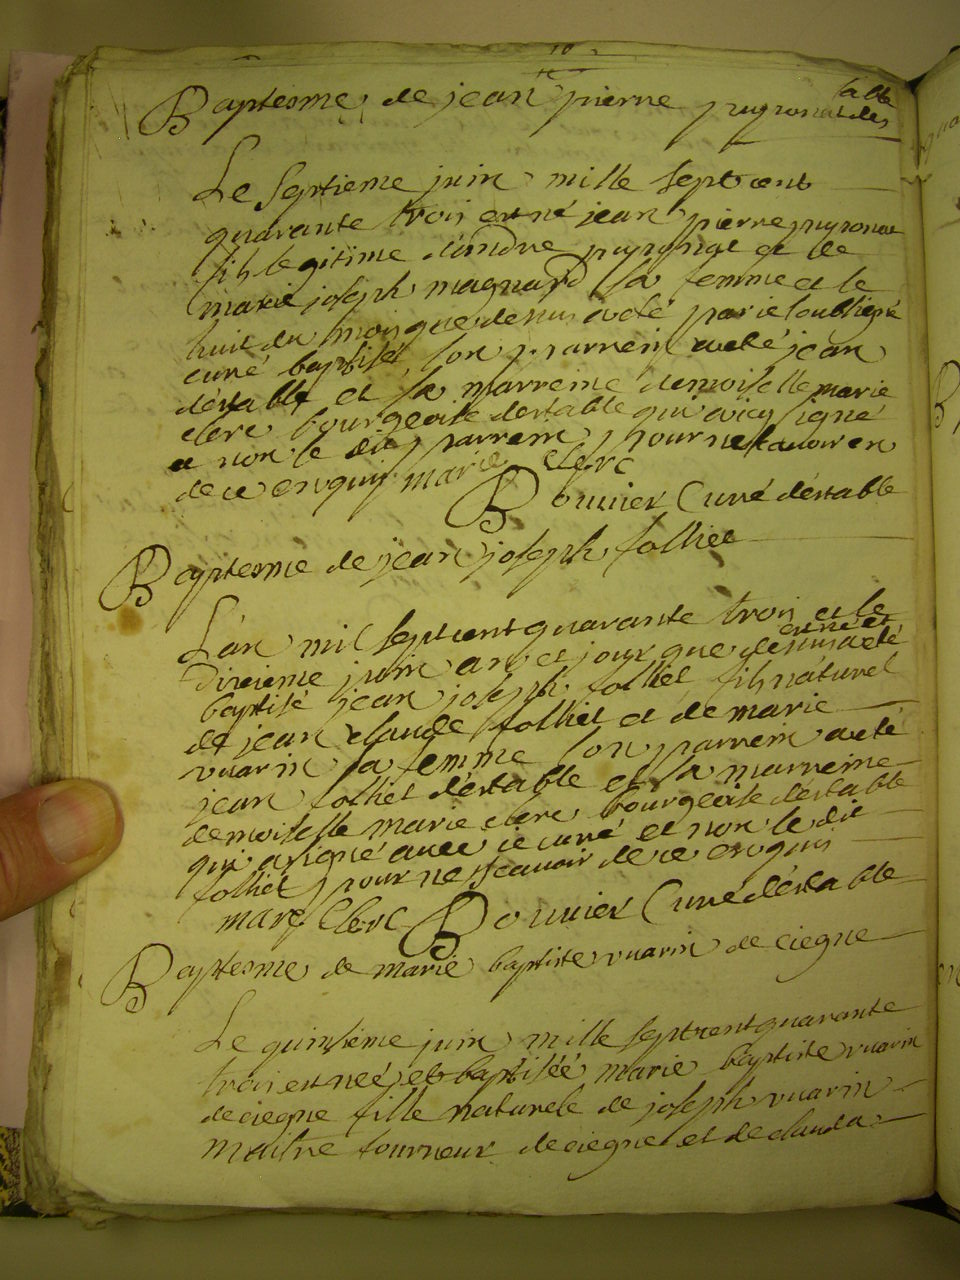 10
Baptesme de jean pierre pugronat des
alle
Le septieme juin mille sept cent
quarante trois est né jean pierre pugronat
fils legitime d'andre pugronat et de
marie joseph magnard sa femme et le
huit du mois que dessus a eté par ie soubsigné
curé baptisé, son parrein a eté jean
destable et sa marreine demoiselle marie
clerc bourgeoise destable qui a icy signé
et non le dit parrein pour ne scavoir en
de ce enquis marie clerc
Bouvier Curé déstable
Baptesme de jean joseph folliet
L'an mil sept cent quarante trois et le
dixieme juin an et jour que dessus a eté
est né et
baptisé jean joseph folliet fils náturel
de jean claude folliet et de marie
vuarin sa femme son parrein a eté
jean folliet d'éstable et sa marreine
demoiselle marie clerc bourgeoise destable
qui a signé avec ie curé et non le dit
folliet pour ne scavoir de ce enquis
marie Clerc Bouvier Curé déstable
Baptesme de marie baptiste vuarin de ciegne
Le quinsieme juin mille sept cent quarante
trois est neé et baptiséé marie baptiste vuarin
de ciegne fille naturele de joseph vuarin
maitre tourneur de ciegne et de clauda